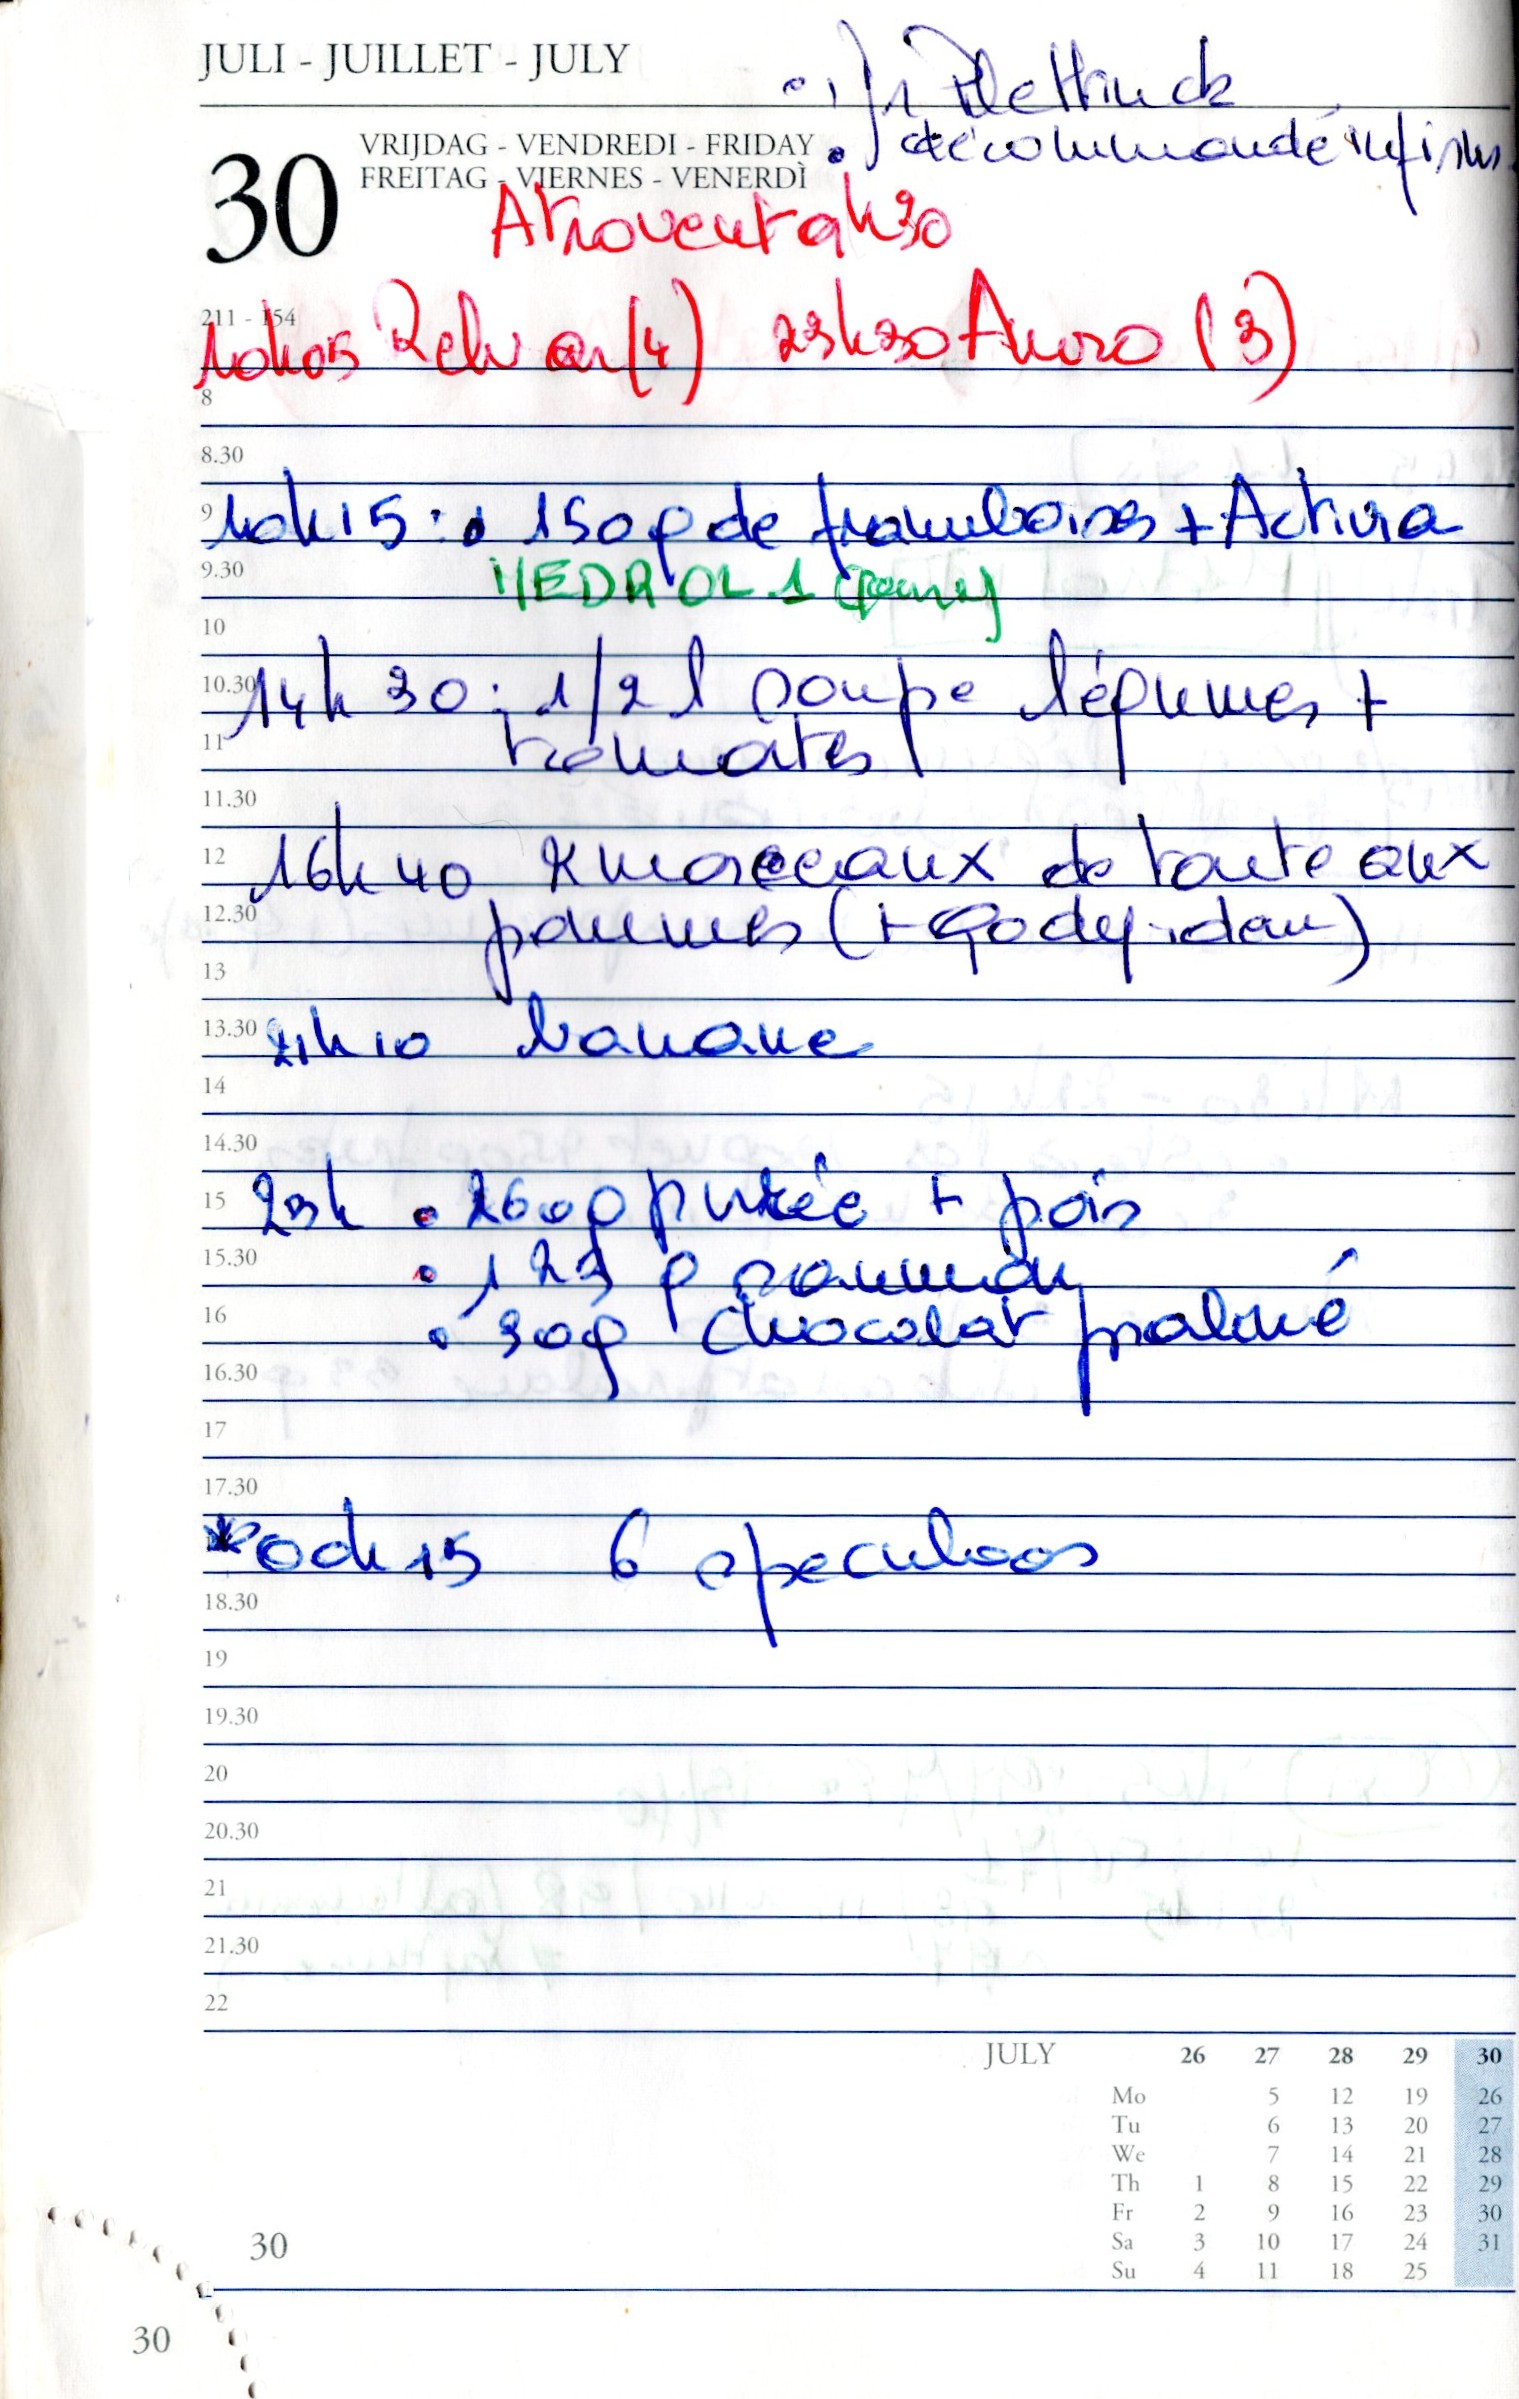 JULI - JUILLET - JULY
30
VRIJDAG - VENDREDI - FRIDAY
FREITAG - VIERNES - VENERDÌ
décommandé
Atrovent 9h30
211 - 154
10h05 Relvar (4) 23h30 Anoro (3)
8
8.30
9
10h15 : 150g de framboises + Activia
9.30
MEDROL 1
10
10.30
14h30 : 1/2 l soupe légumes +
11
tomates
11.30
12
16h40 2 morceaux de tarte aux
12.30
pommes (+
13
13.30
21h10 banane
14
14.30
15
23h • 260g purée + pois
15.30
• 125 g saumon
16
• 30g chocolat praliné
16.30
17
17.30
* 00h15 6 speculoos
18.30
19
19.30
20
20.30
21
21.30
22
JULY 26 27 28 29 30
Mo 5 12 19 26
Tu 6 13 20 27
We 7 14 21 28
Th 1 8 15 22 29
Fr 2 9 16 23 30
Sa 3 10 17 24 31
Su 4 11 18 25
30
30